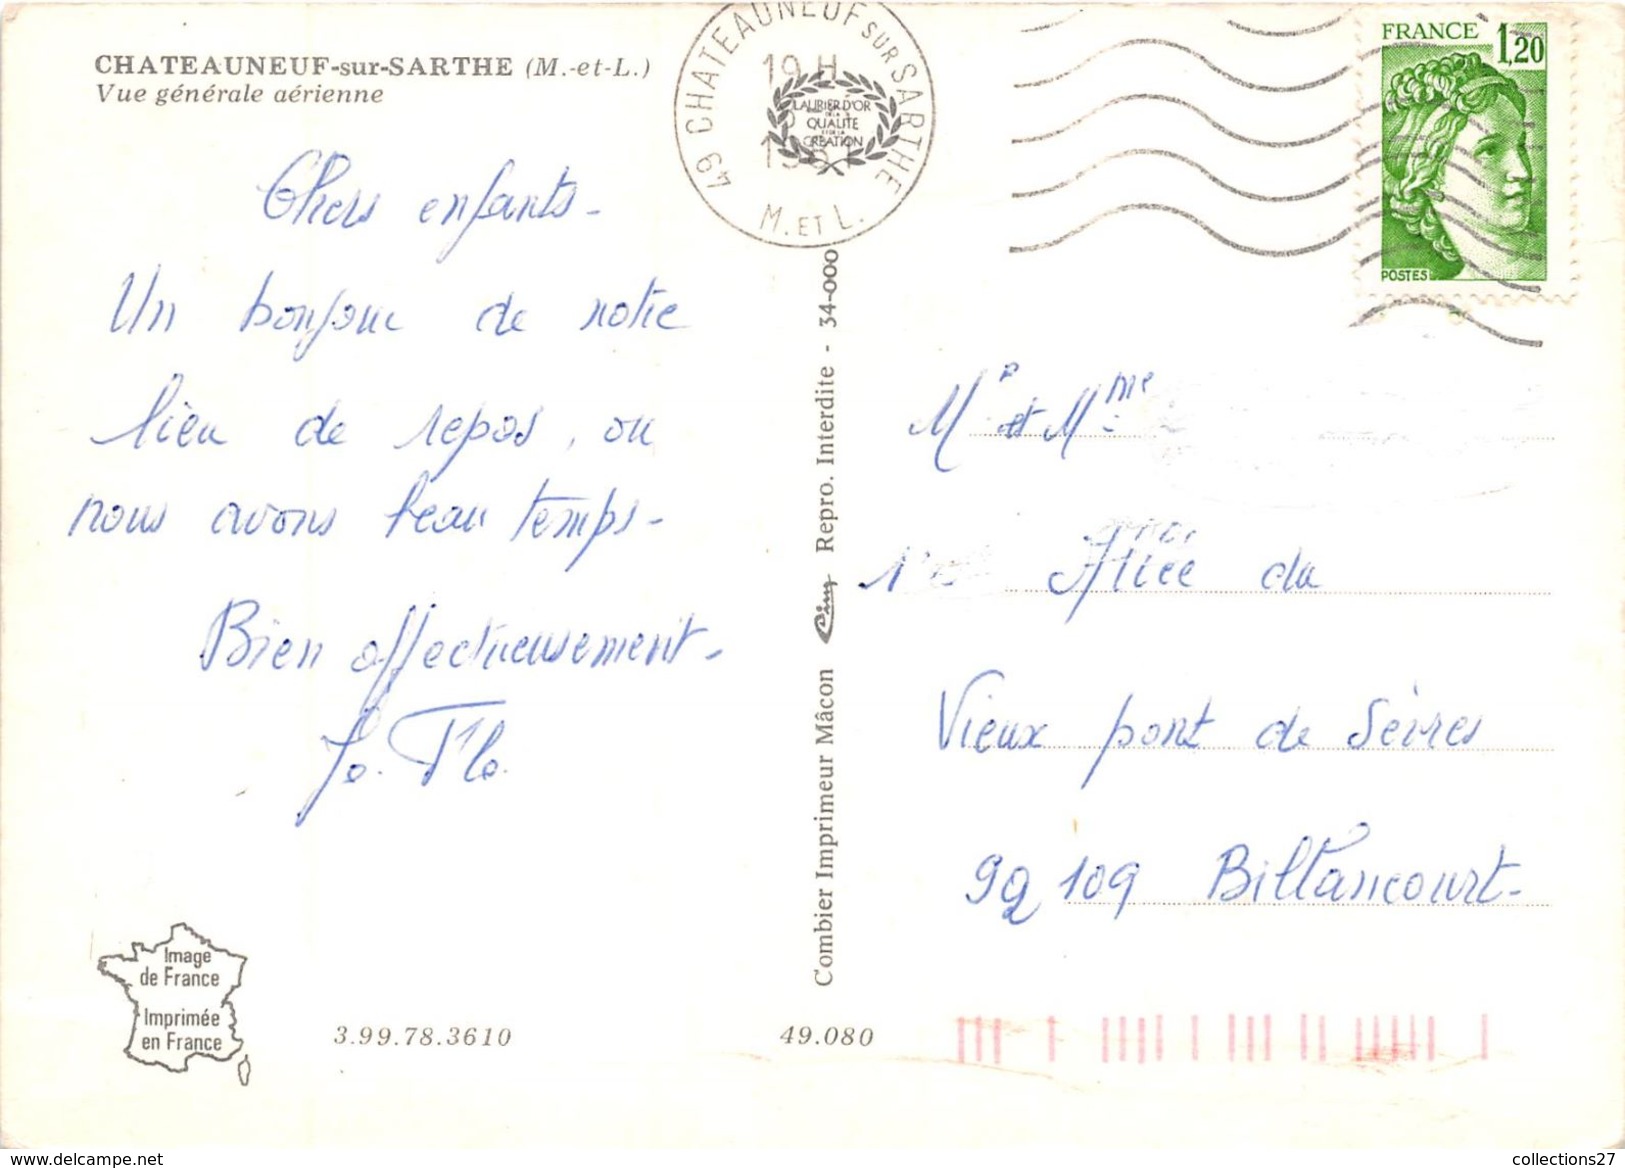 CHATEAUNEUF-sur-SARTHE (M.-et-L.)
Vue générale aérienne
Chers enfants-
Un bonjour de notre
lieu de repos, ou
nous avons beau temps-
Bien affectueusement-
Image
de France
Imprimée
en France
3.99.78.3610
49.080
Combier Imprimeur Mâcon Cim Repro. Interdite - 34-000
49 CHATEAUNEUF SUR SARTHE
19 H
M. ET L.
LAURIER D'OR
DE LA
QUALITE
ET DE LA
CREATION
FRANCE 1,20
POSTES
Mr et Mme
Allée du
Vieux pont de Sèvres
92109 Billancourt-
delcampe.net
collections27